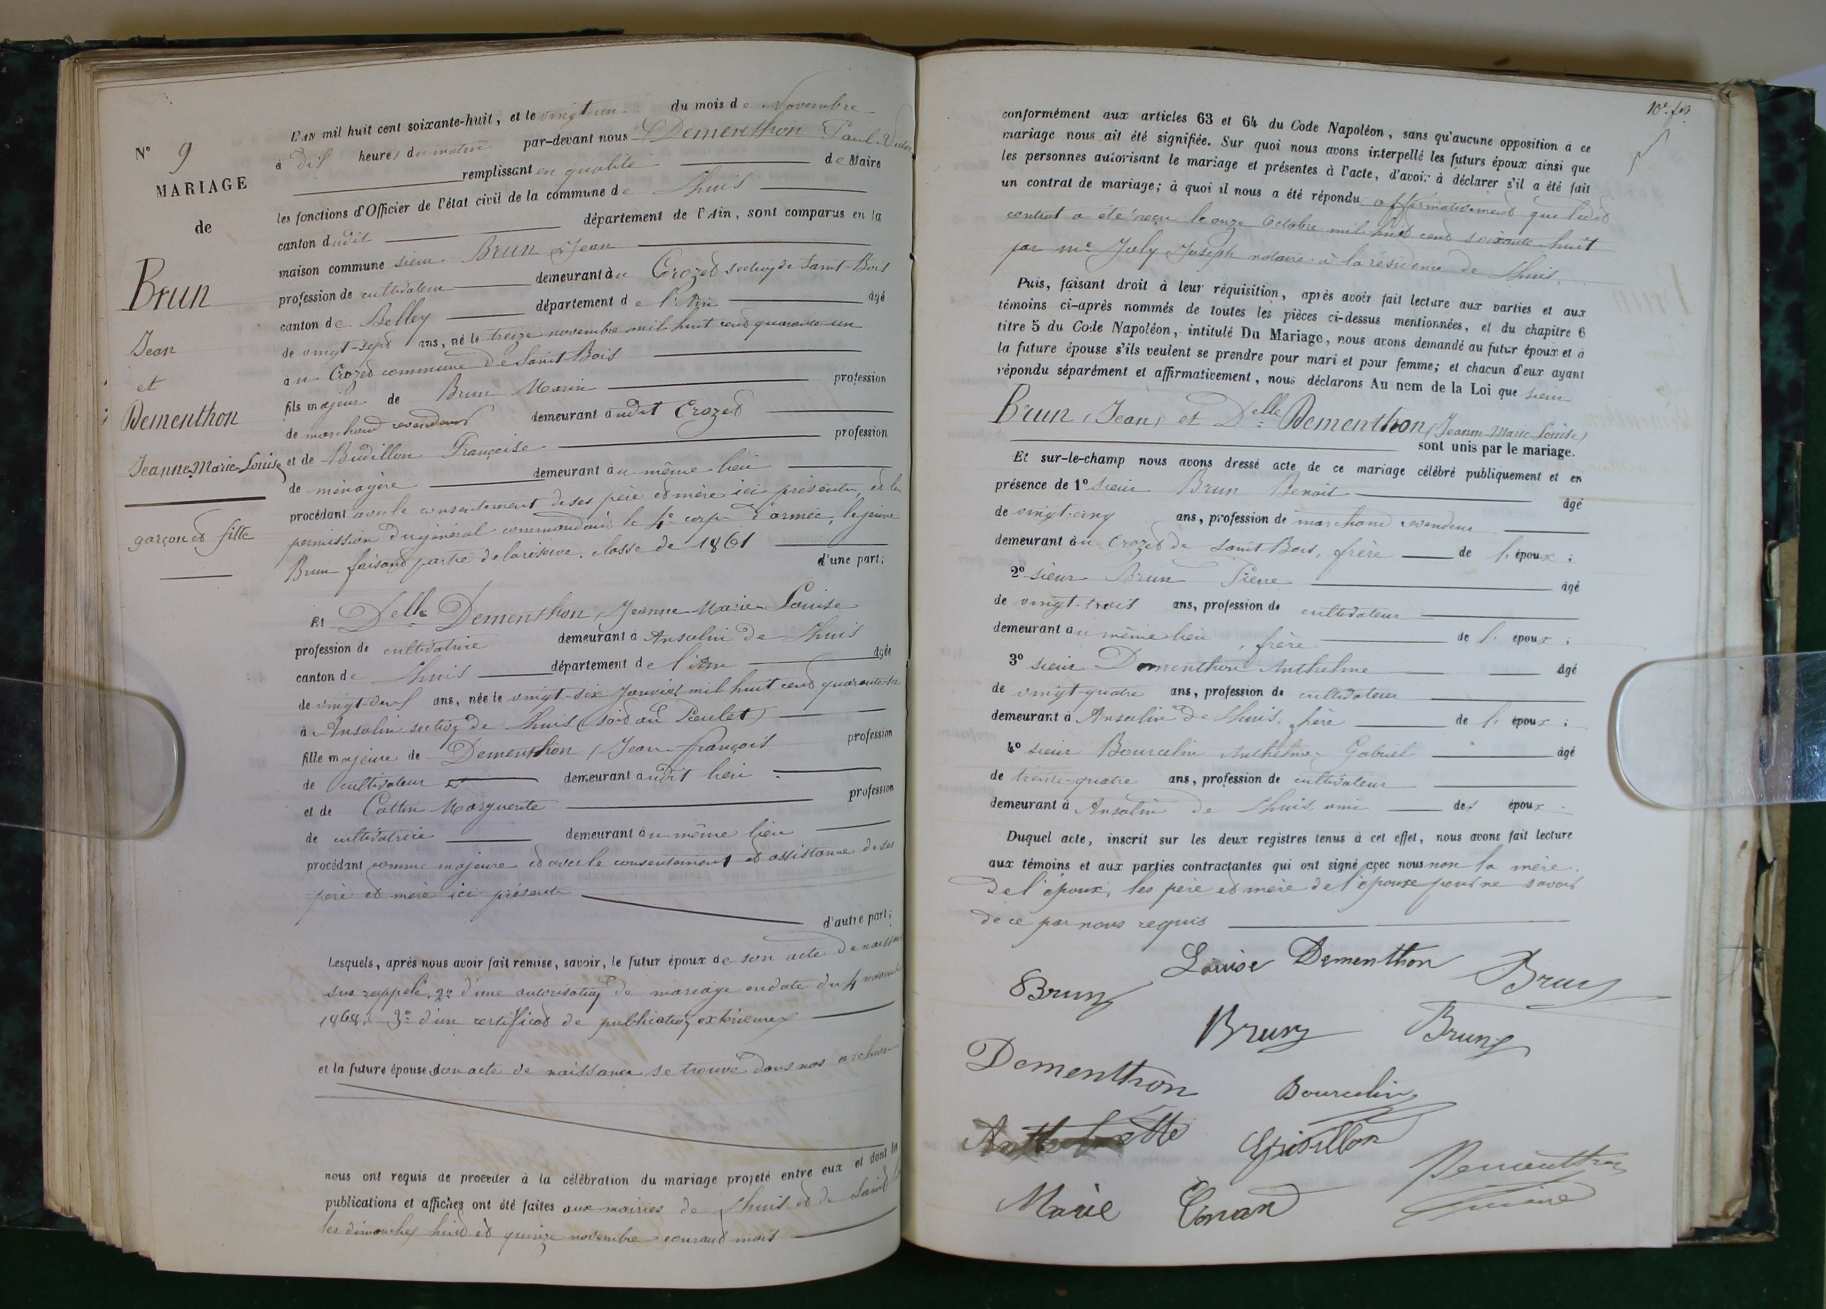 N° 9
MARIAGE
de
Brun
Jean
et
Dementhon
Jeanne-Marie-Louise
garçon et fille
L'an mil huit cent soixante-huit, et le vingt un du mois de Novembre
à dix heures du matin par-devant nous Dementhon Paul
remplissant en qualité de Maire
les fonctions d'Officier de l'état civil de la commune de Lhuis
canton dudit département de l'Ain, sont comparus en la
maison commune sieur Brun Jean
profession de cultivateur demeurant au Crozet section de Saint-Bois
canton de Belley département de l'Ain âgé
de vingt-sept ans, né le treize novembre mil huit cent quarante un
au Crozet commune de Saint Bois
fils majeur de Brun Marin profession
de marchand revendeur demeurant audit Crozet
et de Budillon Françoise profession
de ménagère demeurant au même lieu
procédant avec le consentement de ses père et mère ici présents, et la
permission du général commandant le 4e corps d'armée, le sieur
Brun faisant partie de la réserve. classe de 1861
d'une part;
Et Delle Dementhon, Jeanne Marie Louise
profession de cultivatrice demeurant à Ansolin de Lhuis
canton de Lhuis département de l'Ain âgée
de vingt-deux ans, née le vingt-six Janvier mil huit cent quarante-six
à Ansolin section de Lhuis
fille majeure de Dementhon, Jean-françois profession
de cultivateur demeurant audit lieu
et de Cottin Marguerite profession
de cultivatrice demeurant au même lieu
procédant comme majeure et avec le consentement et assistance de ses
père et mère ici présents
d'autre part;
Lesquels, après nous avoir fait remise, savoir, le futur époux de son acte de naissance
sus rappelé, 2° d'une autorisation de mariage en date du 4 novembre
1868, 3° d'un certificat de publication extérieure
et la future épouse, son acte de naissance se trouve dans nos archives
nous ont requis de procéder à la célébration du mariage projeté entre eux et dont les
publications et affiches ont été faites aux mairies de Lhuis et de Saint
les dimanches huit et quinze novembre courant mois
10e fos
conformément aux articles 63 et 64 du Code Napoléon, sans qu'aucune opposition à ce
mariage nous ait été signifiée. Sur quoi nous avons interpellé les futurs époux ainsi que
les personnes autorisant le mariage et présentes à l'acte, d'avoir à déclarer s'il a été fait
un contrat de mariage; à quoi il nous a été répondu affirmativement que ledit
contrat a été reçu le onze Octobre mil huit cent soixante-huit
par me July Joseph notaire à la résidence de Lhuis.
Puis, faisant droit à leur réquisition, après avoir fait lecture aux parties et aux
témoins ci-après nommés de toutes les pièces ci-dessus mentionnées, et du chapitre 6
titre 5 du Code Napoléon, intitulé Du Mariage, nous avons demandé au futur époux et à
la future épouse s'ils veulent se prendre pour mari et pour femme; et chacun d'eux ayant
répondu séparément et affirmativement, nous déclarons Au nom de la Loi que sieur
Brun (Jean) et Delle Dementhon (Jeanne-Marie Louise)
sont unis par le mariage.
Et sur-le-champ nous avons dressé acte de ce mariage célébré publiquement et en
présence de 1° sieur Brun Benoit âgé
de vingt-cinq ans, profession de marchand revendeur
demeurant au Crozet de Saint Bois, frère de l'époux;
2° sieur Brun Pierre âgé
de vingt-trois ans, profession de cultivateur
demeurant au même lieu, frère de l'époux;
3° sieur Dementhon Anthelme âgé
de vingt-quatre ans, profession de cultivateur
demeurant à Ansolin de Lhuis, frère de l'époux;
4° sieur Bourcelin Anthelme Gabriel âgé
de trente-quatre ans, profession de cultivateur
demeurant à Ansolin de Lhuis ami des époux.
Duquel acte, inscrit sur les deux registres tenus à cet effet, nous avons fait lecture
aux témoins et aux parties contractantes qui ont signé avec nous non la mère
de l'époux, les père et mère de l'épouse pour ne savoir
de ce par nous requis
Louise Dementhon Brun
Brun
Brun Brun
Dementhon Bourcelin
Marie
Dementhon
maire